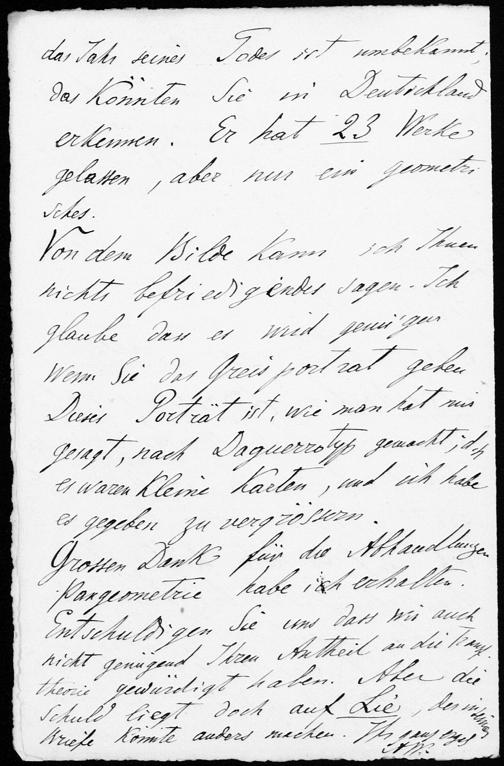 das Jahr seines Todes ist umbekannt,
das Könnten Sie in Deutschland
erkennen. Er hat 23 Werke
gelassen, aber nur ein geometri
sches.
Von dem Bilde kann ich Ihnen
nichts befriedigendes sagen. Ich
glaube dass es wird genügen
wenn Sie das Greisporträt geben
Dieses Porträt ist, wie man hat mir
gesagt, nach Daguerrotyp gemacht; d.h.
es waren kleine Karten, und ich habe
es gegeben zu vergrössern.
Grossen Dank für die Abhandlungen
Pangeometrie habe ich erhalten.
Entschuldigen Sie uns dass wir auch
nicht genügend Ihren Antheil an die Transf.
theorie gewürdigt haben. Aber die
Schuld liegt doch auf Lie, der in seinem
Briefe könnte anders machen. Ihr ganz